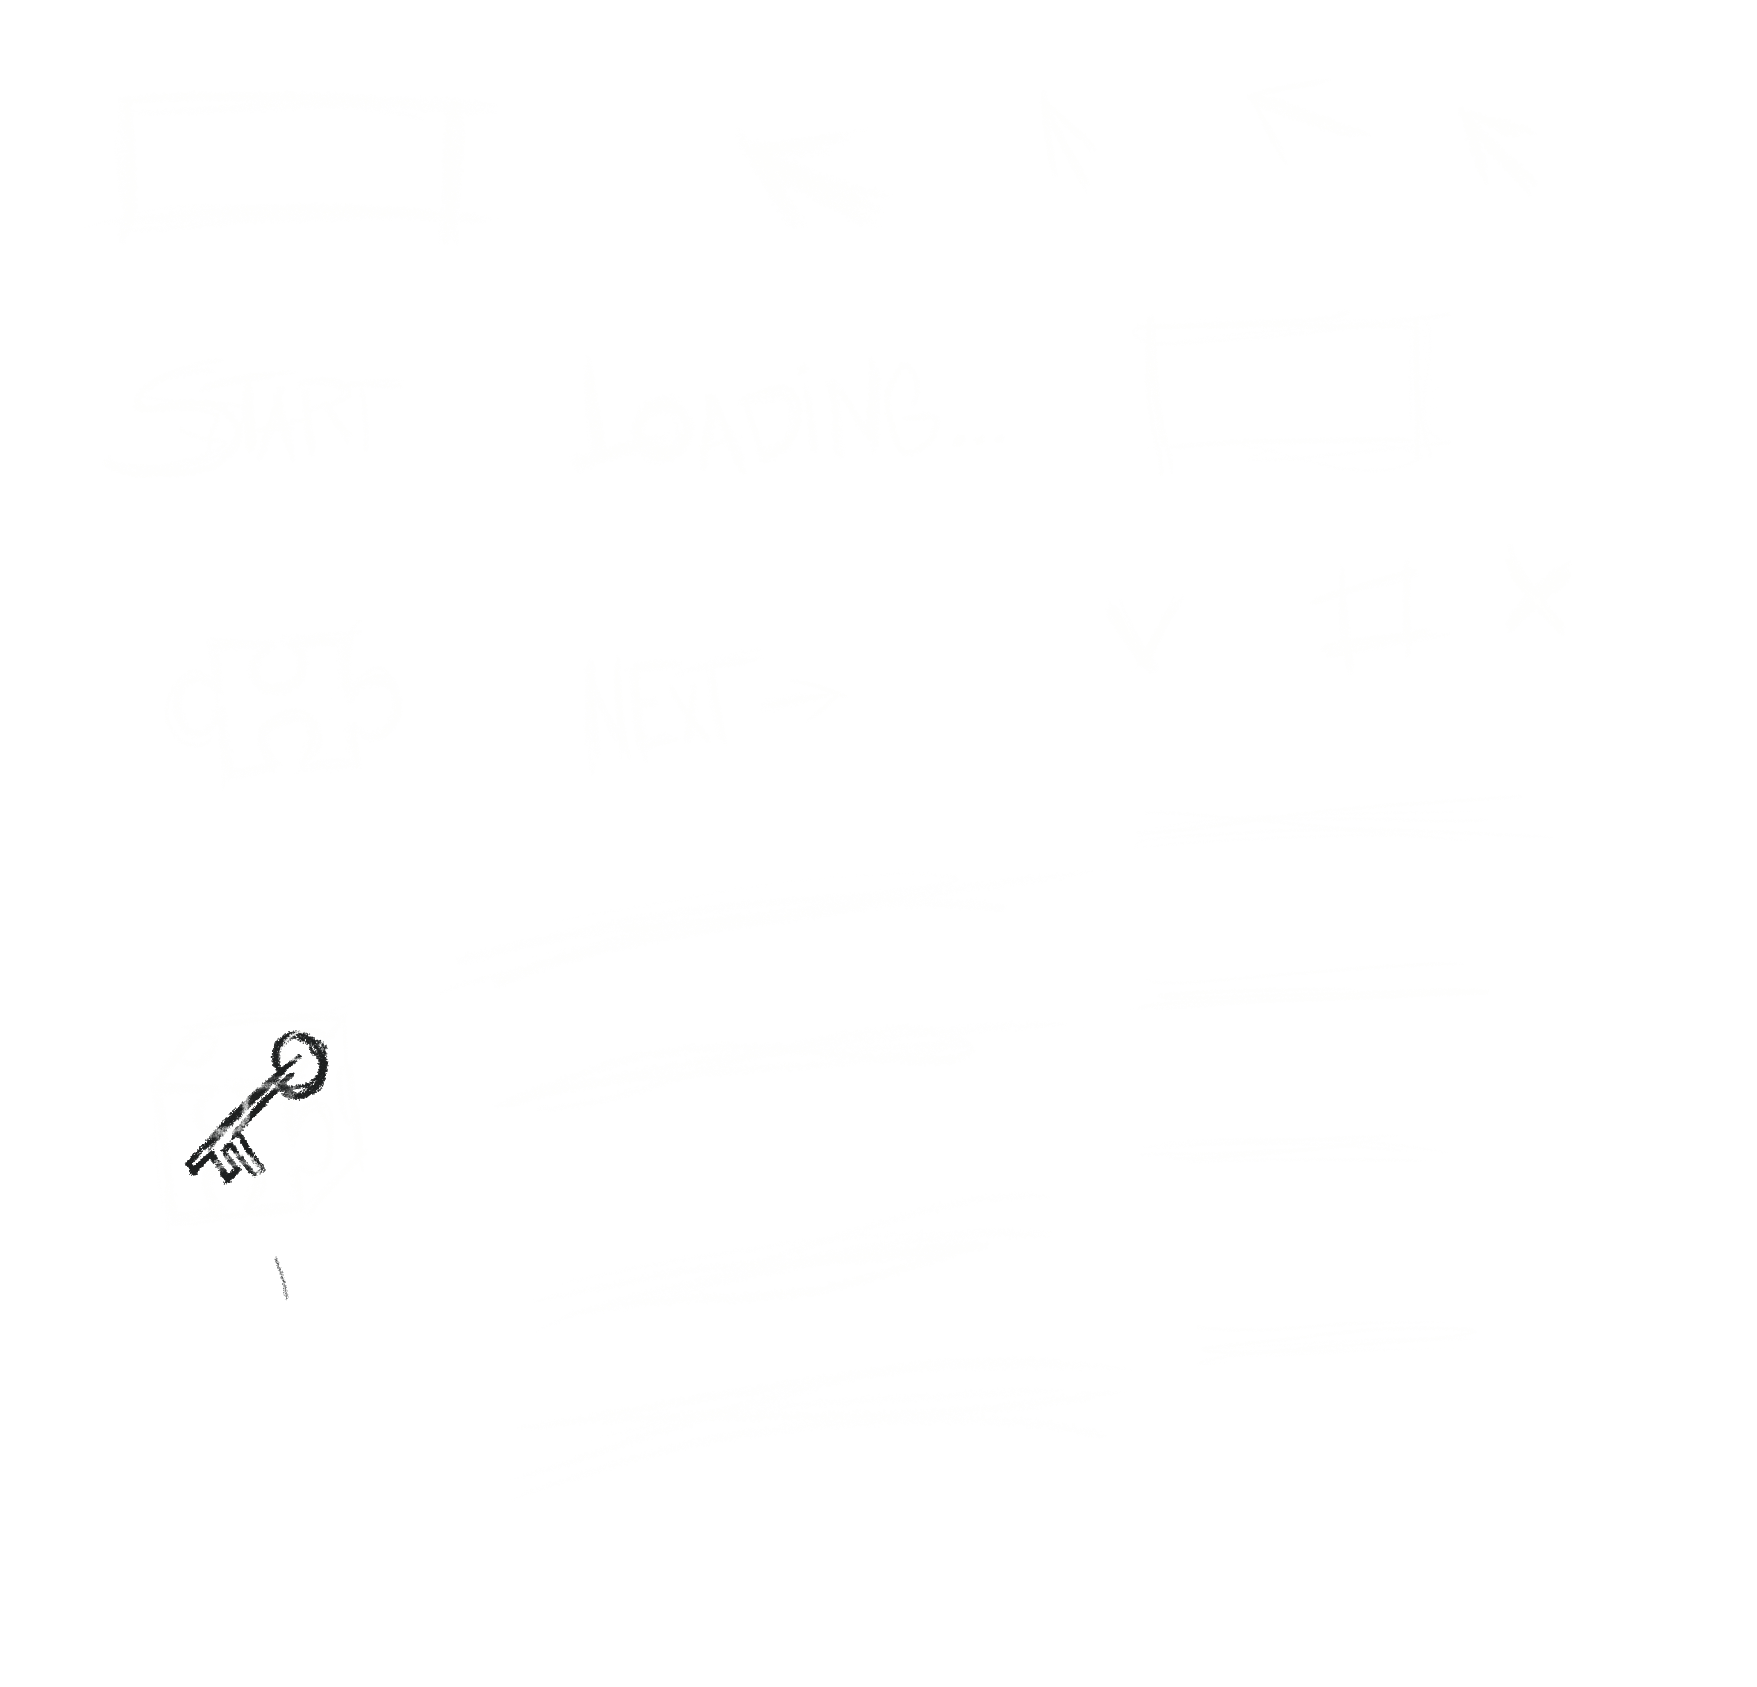 START
LOADING...
NEXT →